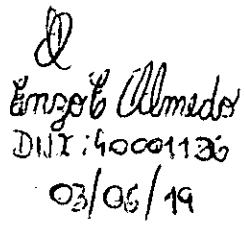 Enzo E Olmedo
DNI: 40001136
03/06/19